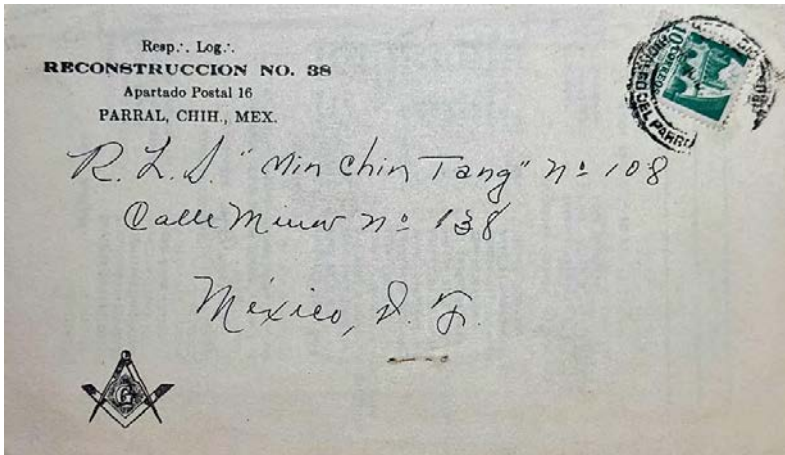 Resp∴ Log∴
RECONSTRUCCION NO. 38
Apartado Postal 16
PARRAL, CHIH., MEX.
10 CORREO
DEL PARR
R. L. S. "Min Chin Tang" Nº 108
Calle Nº 138
México, D. F.
G